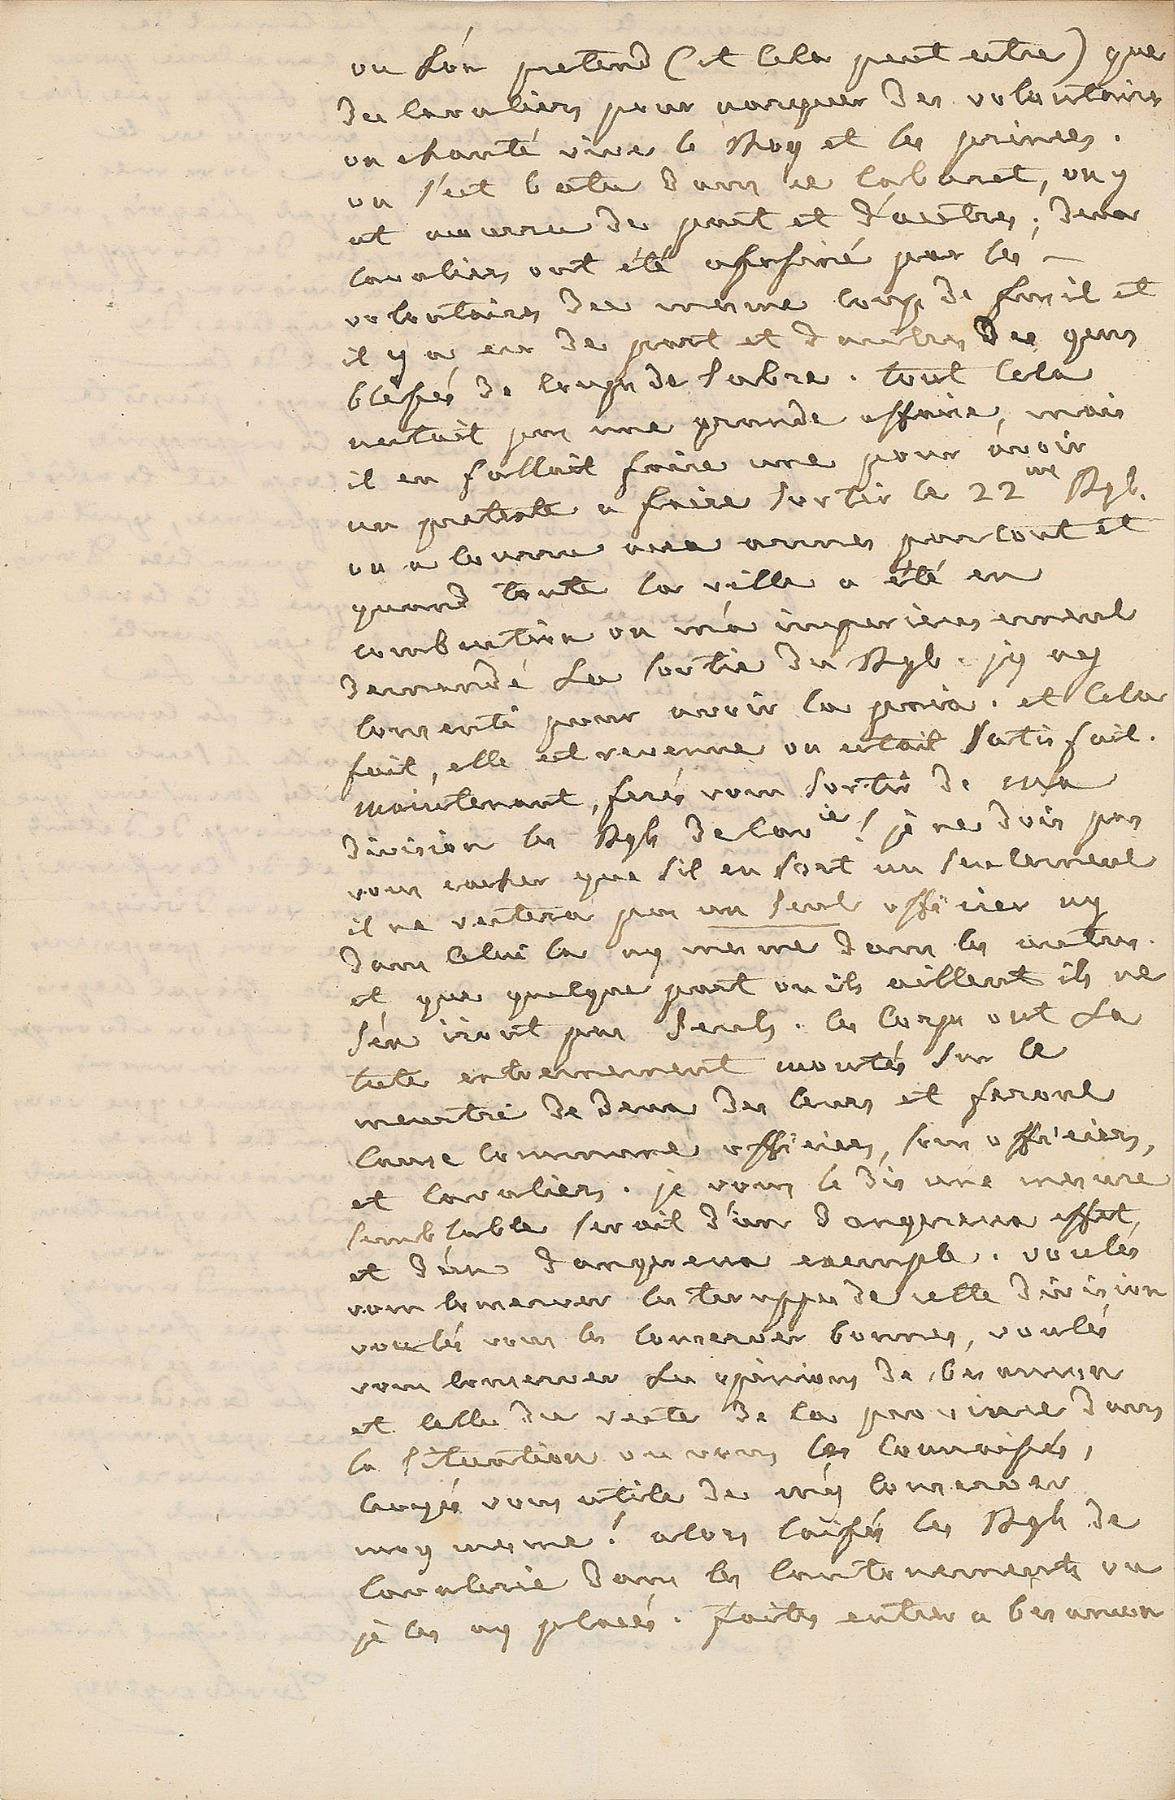 ou l'on pretend (et cela peut estre) que
des cavaliers pour narguer des volontaires
on chanté vive le Roy et les princes.
on s'est batu dans ce cabaret, on y
at acourru de part et d'autres; deux
cavaliers ont été assassiné par les
volontaires du mesme coup de fusil et
il y a eu de part et d'autres des gens
blessés de coups de sabre. tout cela
nestoit pas une grande affaire, mais
il en falloit faire une pour avoir
un pretexte a faire sortir le 22me Rgt.
on a courru aux armes partout et
quand toute la ville a été en
combustion on m'a imperieusement
demandé la sortie du Rgt. j'y ay
consenti pour avoir la paix. et cela
fait, elle est revenue on estoit satisfait.
maintenant, ferés vous sortir de ma
division les Rgts de cavie! je ne dois pas
vous cacher que s'il en sort un seulement
il ne restera pas un seul officier ny
dans celui la ny mesme dans les autres.
et que quelque part ou ils aillent ils ne
s'en iront pas seuls. les corps ont la
teste extremement montés sur le
meurtre de deux des leurs et feront
cause commune officiers, sous officiers,
et cavaliers. je vous le dis une mesure
semblable seroit d'un dangereux effet,
et d'un dangereux exemple. voulés
vous conserver les trouppes de cette division
voulés vous les conserver bonnes, voulés
vous conserver les opinions de besancon
et celle du reste de la province dans
la situation ou vous les connoissés,
croyés vous utile de m'y conserver
moy mesme! alors laissés les Rgts de
cavalerie dans les cantonnements ou
je les ay placés. faites entrer a besancon